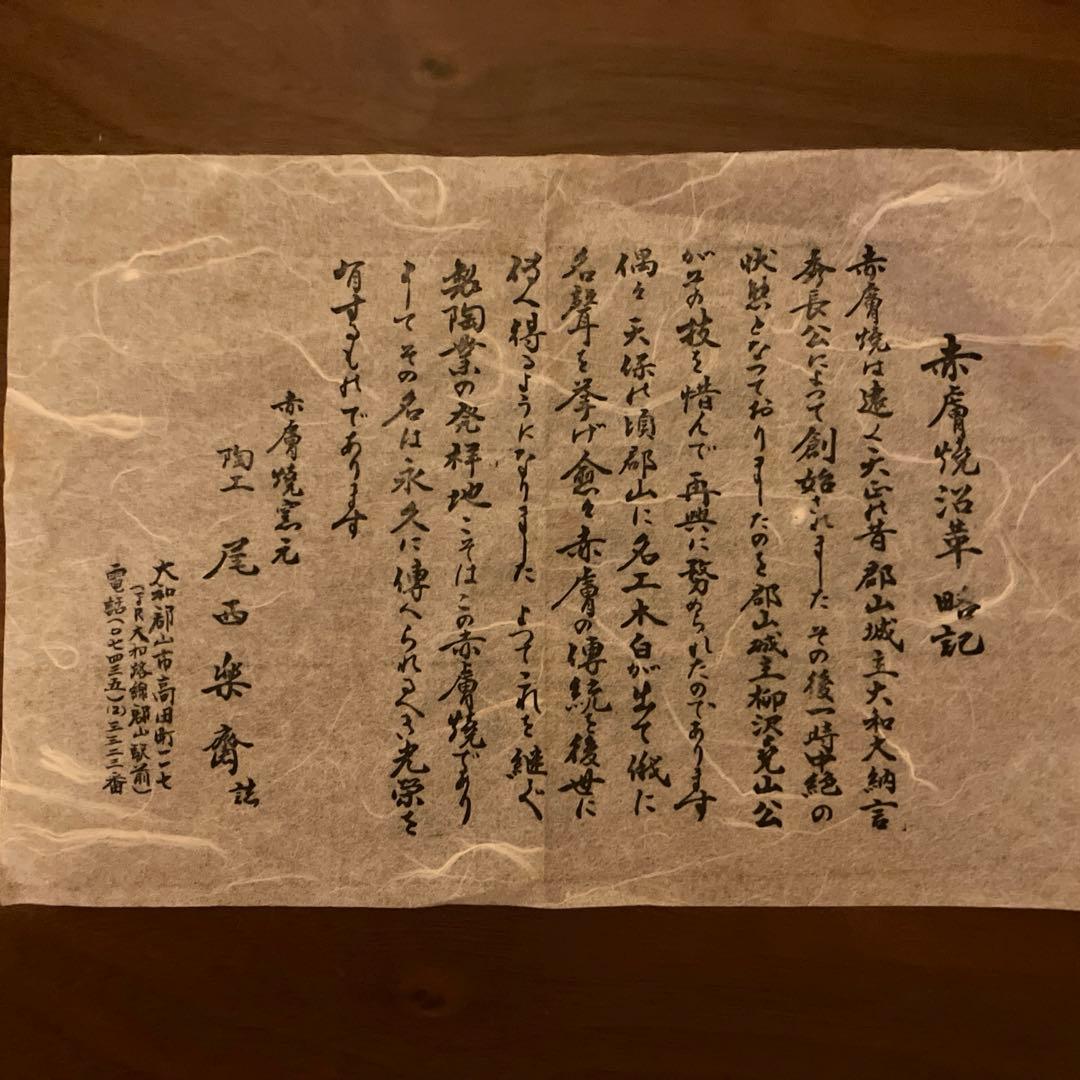 赤膚焼沿革略記
赤膚焼は遠く天正の昔郡山城主大和大納言
秀長公によつて創始されました その後一時中絶の
状態となつておりましたのを郡山城主柳沢尭山公
がその技を惜んで再興に務められたのであります
偶々天保の頃郡山に名工木白が出て俄に
名聲を挙げ愈々赤膚の傳統を後世に
傳へ得るようになりました よつてこれを継ぐ
製陶業の発祥地こそはこの赤膚焼であり
ましてその名は永久に傳へられるべき光栄を
有するものであります
赤膚焼窯元
陶工 尾西楽斎 誌
大和郡山市高田町一一七
(JR大和路線郡山駅前)
電話(〇七四三五)(2)三三二二番